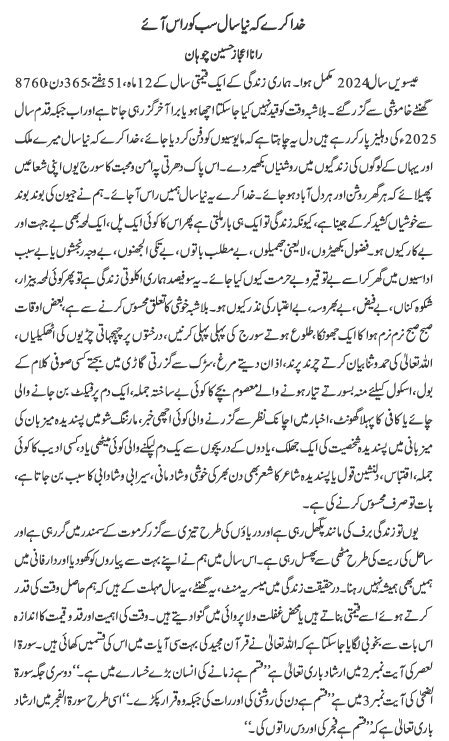 خدا کرے کہ نیا سال سب کو راس آئے
رانا اعجاز حسین چوہان
عیسویں سال 2024 مکمل ہوا۔ ہماری زندگی کے ایک قیمتی سال کے 12 ماہ، 51 ہفتے، 365 دن، 8760
گھنٹے خاموشی سے گزر گئے۔ بلاشبہ وقت کو قید نہیں کیا جاسکتا اچھا ہو یا برا آخر گزر ہی جاتا ہے اور اب جبکہ قدم سال
2025ء کی دہلیز پار کر رہے ہیں دل یہ چاہتا ہے کہ مایوسیوں کو دفن کر دیا جائے، خدا کرے کہ نیا سال میرے ملک
اور یہاں کے لوگوں کی زندگیوں میں روشنیاں بکھیر دے۔ اس پاک دھرتی پہ امن و محبت کا سورج یوں اپنی شعاعیں
پھیلائے کہ ہر گھر روشن اور ہر دل آباد ہو جائے۔ خدا کرے یہ نیا سال ہمیں راس آجائے۔ ہم نے جیون کی بوند بوند
سے خوشیاں کشید کر کے جینا ہے، کیونکہ زندگی تو ایک ہی بار ملتی ہے پھر اس کا کوئی ایک پل، ایک لمحہ بھی بے جہت اور
بے کار کیوں ہو۔ فضول بکھیڑوں، لایعنی جھمیلوں، بے مطلب باتوں، بے تکی الجھنوں، بے وجہ رنجشوں یا بے سبب
اداسیوں میں گھر کر اسے بے توقیر و بے حرمت کیوں کیا جائے۔ یہ سو فیصد ہماری اکلوتی زندگی ہے تو پھر کوئی لمحہ بیزار،
شکوہ کناں، بے فیض، بے بھروسہ، بے اعتبار کی نذر کیوں ہو۔ بلاشبہ خوشی کا تعلق محسوس کرنے سے ہے، بعض اوقات
صبح صبح نرم نرم ہوا کا ایک جھونکا، طلوع ہوتے سورج کی پہلی پہلی کرنیں، درختوں پر چہچہاتی چڑیوں کی اٹھکیلیاں،
اللہ تعالیٰ کی حمد و ثنا بیان کرتے چرند پرند، اذان دیتے مرغ، سڑک سے گزرتی گاڑی میں بجتے کسی صوفی کلام کے
بول، اسکول کیلئے منہ بسورتے تیار ہونے والے معصوم بچے کا کوئی بے ساختہ جملہ، ایک دم پرفیکٹ بن جانے والی
چائے یا کافی کا پہلا گھونٹ، اخبار میں اچانک نظر سے گزرنے والی کوئی اچھی خبر، مارننگ شو میں پسندیدہ میزبان کی
میزبانی میں پسندیدہ شخصیت کی ایک جھلک، یادوں کے دریچوں سے یک دم لپکنے والی کوئی میٹھی یاد، کسی ادیب کا کوئی
جملہ، اقتباس، دلنشین قول یا پسندیدہ شاعر کا شعر بھی دن بھر کی خوشی و شادمانی، سیرابی و شادابی کا سبب بن جاتا ہے،
بات تو صرف محسوس کرنے کی ہے۔
یوں تو زندگی برف کی مانند پگھل رہی ہے اور دریاؤں کی طرح تیزی سے گزر کر موت کے سمندر میں گر رہی ہے اور
ساحل کی ریت کی طرح مٹھی سے پھسل رہی ہے۔ اس سال میں ہم نے اپنے بہت سے پیاروں کو کھو دیا اور دار فانی میں
ہمیں بھی ہمیشہ نہیں رہنا۔ درحقیقت زندگی میں میسر یہ منٹ، یہ گھنٹے، یہ سال مہلت کے ہیں کہ ہم حاصل وقت کی قدر
کرتے ہوئے اسے قیمتی بناتے ہیں یا محض غفلت و لا پروائی میں گنوا دیتے ہیں۔ وقت کی اہمیت اور قدر و قیمت کا اندازہ
اس بات سے بخوبی لگایا جاسکتا ہے کہ اللہ تعالیٰ نے قرآن مجید کی بہت سی آیات میں اس کی قسمیں کھائی ہیں۔ سورۃ
العصر کی آیت نمبر 2 میں ارشاد باری تعالیٰ ہے ”قسم ہے زمانے کی انسان بڑے خسارے میں ہے۔“ دوسری جگہ سورۃ
الضحیٰ کی آیت نمبر 3 میں ہے ”قسم ہے دن کی روشنی کی اور رات کی جبکہ وہ قرار پکڑے۔“ اسی طرح سورۃ الفجر میں ارشاد
باری تعالیٰ ہے کہ ”قسم ہے فجر کی اور دس راتوں کی۔“